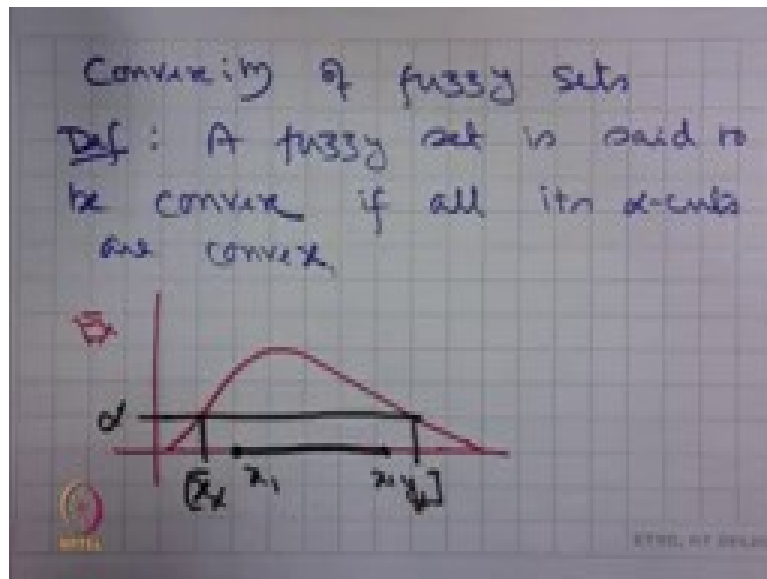 Convexity of fuzzy sets
Def : A fuzzy set is said to
be convex if all its α-cuts
are convex.
α
[x_α x₁ y_α]
NPTEL